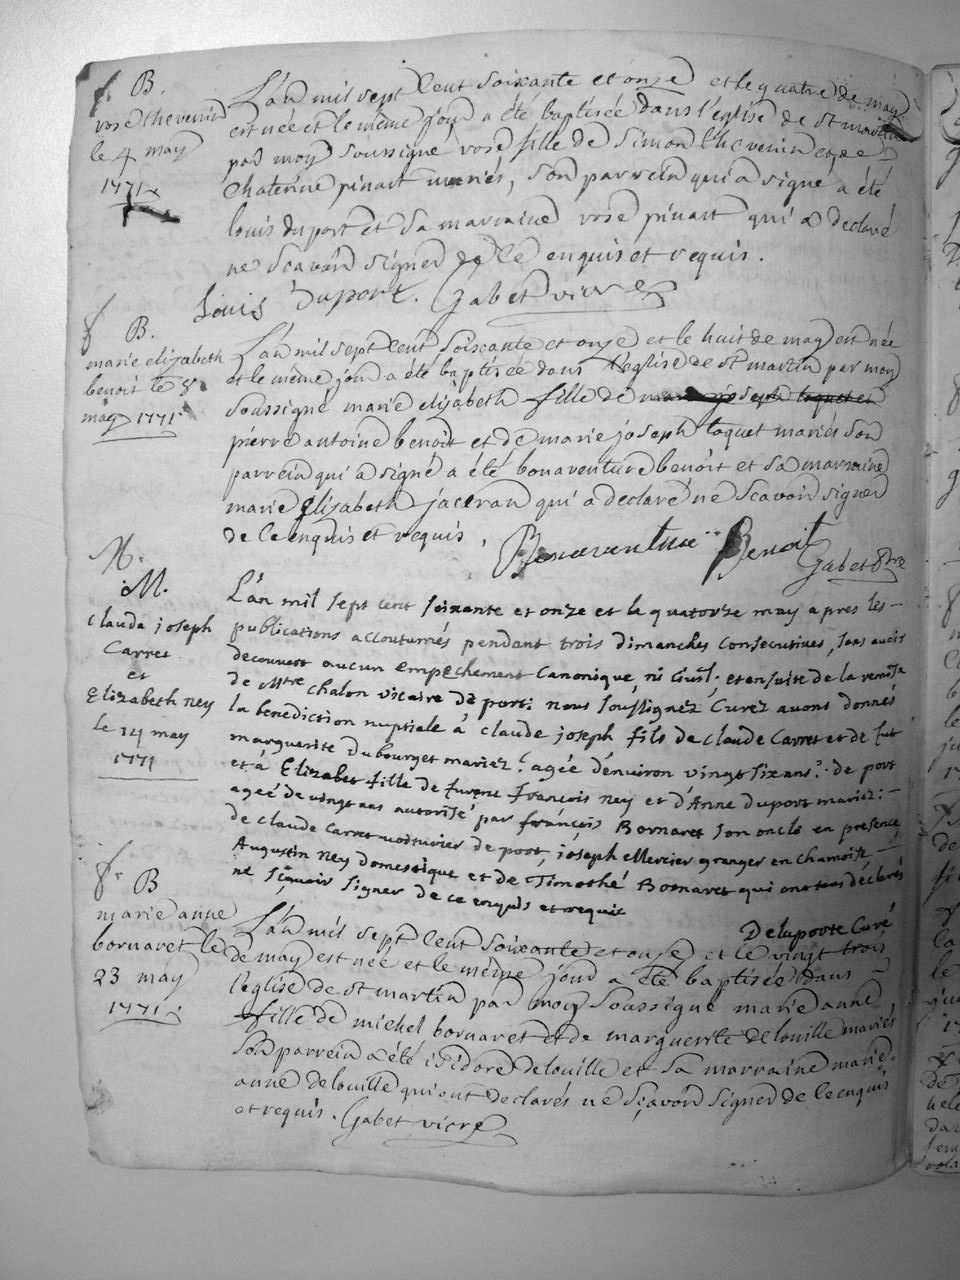 B.
rose thevenin
le 4 may
1771
L'an mil sept Cent soixante et onze et le quatre de may
est née et le même jour a été baptisée dans l'église de st martin
par moy soussigné rose fille de Simon thevenin et de
Chaterine pinart mariés, son parrein qui a signé a été
louis duport et sa marraine rose pinart qui a declaré
ne scavoir signer de ce enquis et requis.
Louis Duport. Gabet vicre
B.
marie elizabeth
benoit le 8
may 1771
L'an mil sept Cent soixante et onze et le huit de may est née
et le même jour a été baptisée dans l'église de st martin par moy
soussigné marie elizabeth fille de joseph loquet et
pierre antoine benoit et de marie joseph loquet mariés son
parrein qui a signé a été bonaventure benoit et sa marraine
marie Elizabeth jaceran qui a declaré ne scavoir signer
de ce enquis et requis.
Bonaventure Benoit
Gabet
M.
Claude joseph
Carret
et
Elizabeth Ney
Le 14 may
1771
L'an mil sept cent soixante et onze et le quatorze may apres les
publications accoutumés pendant trois dimanches consecutives, sans avoir
decouvert aucun empechement Canonique, ni Civil; et ensuite de la remise
de Mtre chalon vicaire de port: nous soussignez Curez avons donnés
la benediction nuptiale à claude joseph fils de Claude Carret et de fut
marguerite Dubourget mariez: agée d'environ vingt six ans: de port
et à Elizabet fille de furent françois Ney et d'Anne Duport mariez:
ageé de vingt ans autorisé par françois Bornaret son oncle en presence
de claude Carret voiturier de port, joseph Mercier granger en chamoise
Augustin Ney domestique et de Timothé Bornaret qui ont tous déclarés
ne sçavoir signer de ce enquis et requis
Delaporte Curé
B
marie anne
bornaret le
23 may
1771
L'an mil sept Cent soixante et onze et le vingt trois
de may est née et le même jour a été baptisée dans
l'église de st martin par moy soussigné marie anne
fille de michel bornaret et de marguerite delouille mariés
son parrein a été isidore delouille et sa marraine marie
anne delouille qui ont declarés ne sçavoir signer de ce enquis
et requis. Gabet vicre